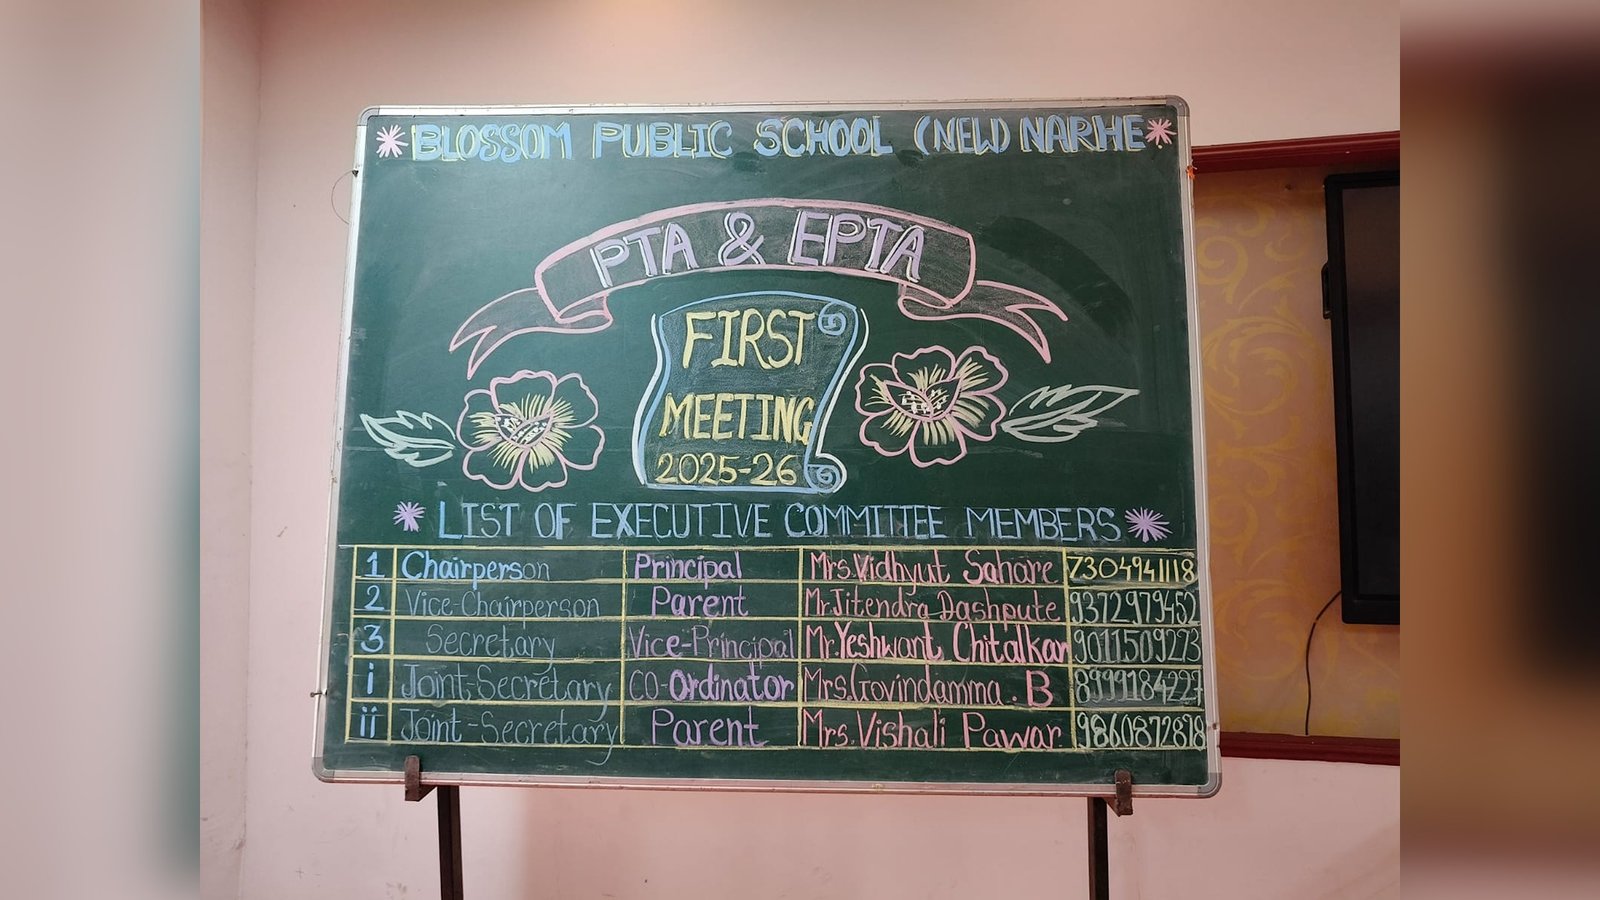 BLOSSOM PUBLIC SCHOOL (NEW) NARHE.
PTA & EPTA
FIRST
MEETING
2025-26
LIST OF EXECUTIVE COMMITTEE MEMBERS
1 Chairperson Principal Mrs.Vidhyut Sahare 7304941118
2 Vice-Chairperson Parent Mr.Jitendra Dashpute 9372979452
3 Secretary Vice-Principal Mr.Yeshwant Chitalkar 9011509273
i Joint-Secretary CO-Ordinator Mrs.Govindamma.B 8999184227
ii Joint-Secretary Parent Mrs.Vishali Pawar. 9860872878